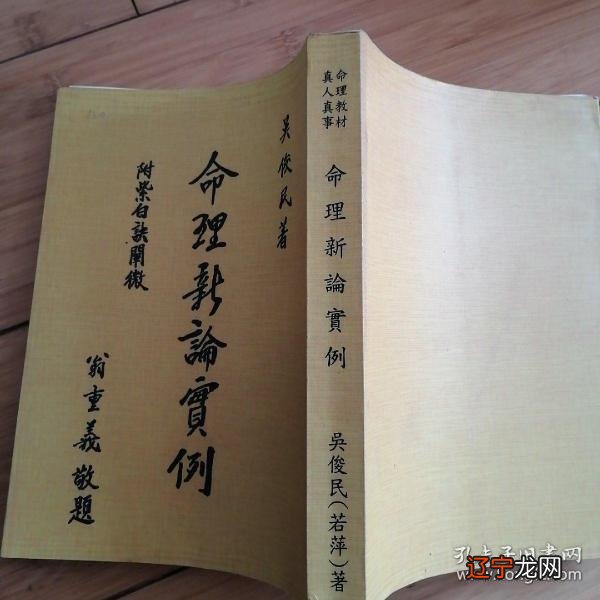 吳俊民著
命理新論實例
附紫白訣闡微
翁重義敬題
命理教材
真人真事
命理新論實例
吳俊民(若萍)著
孔夫子旧书网
辽宁龙网